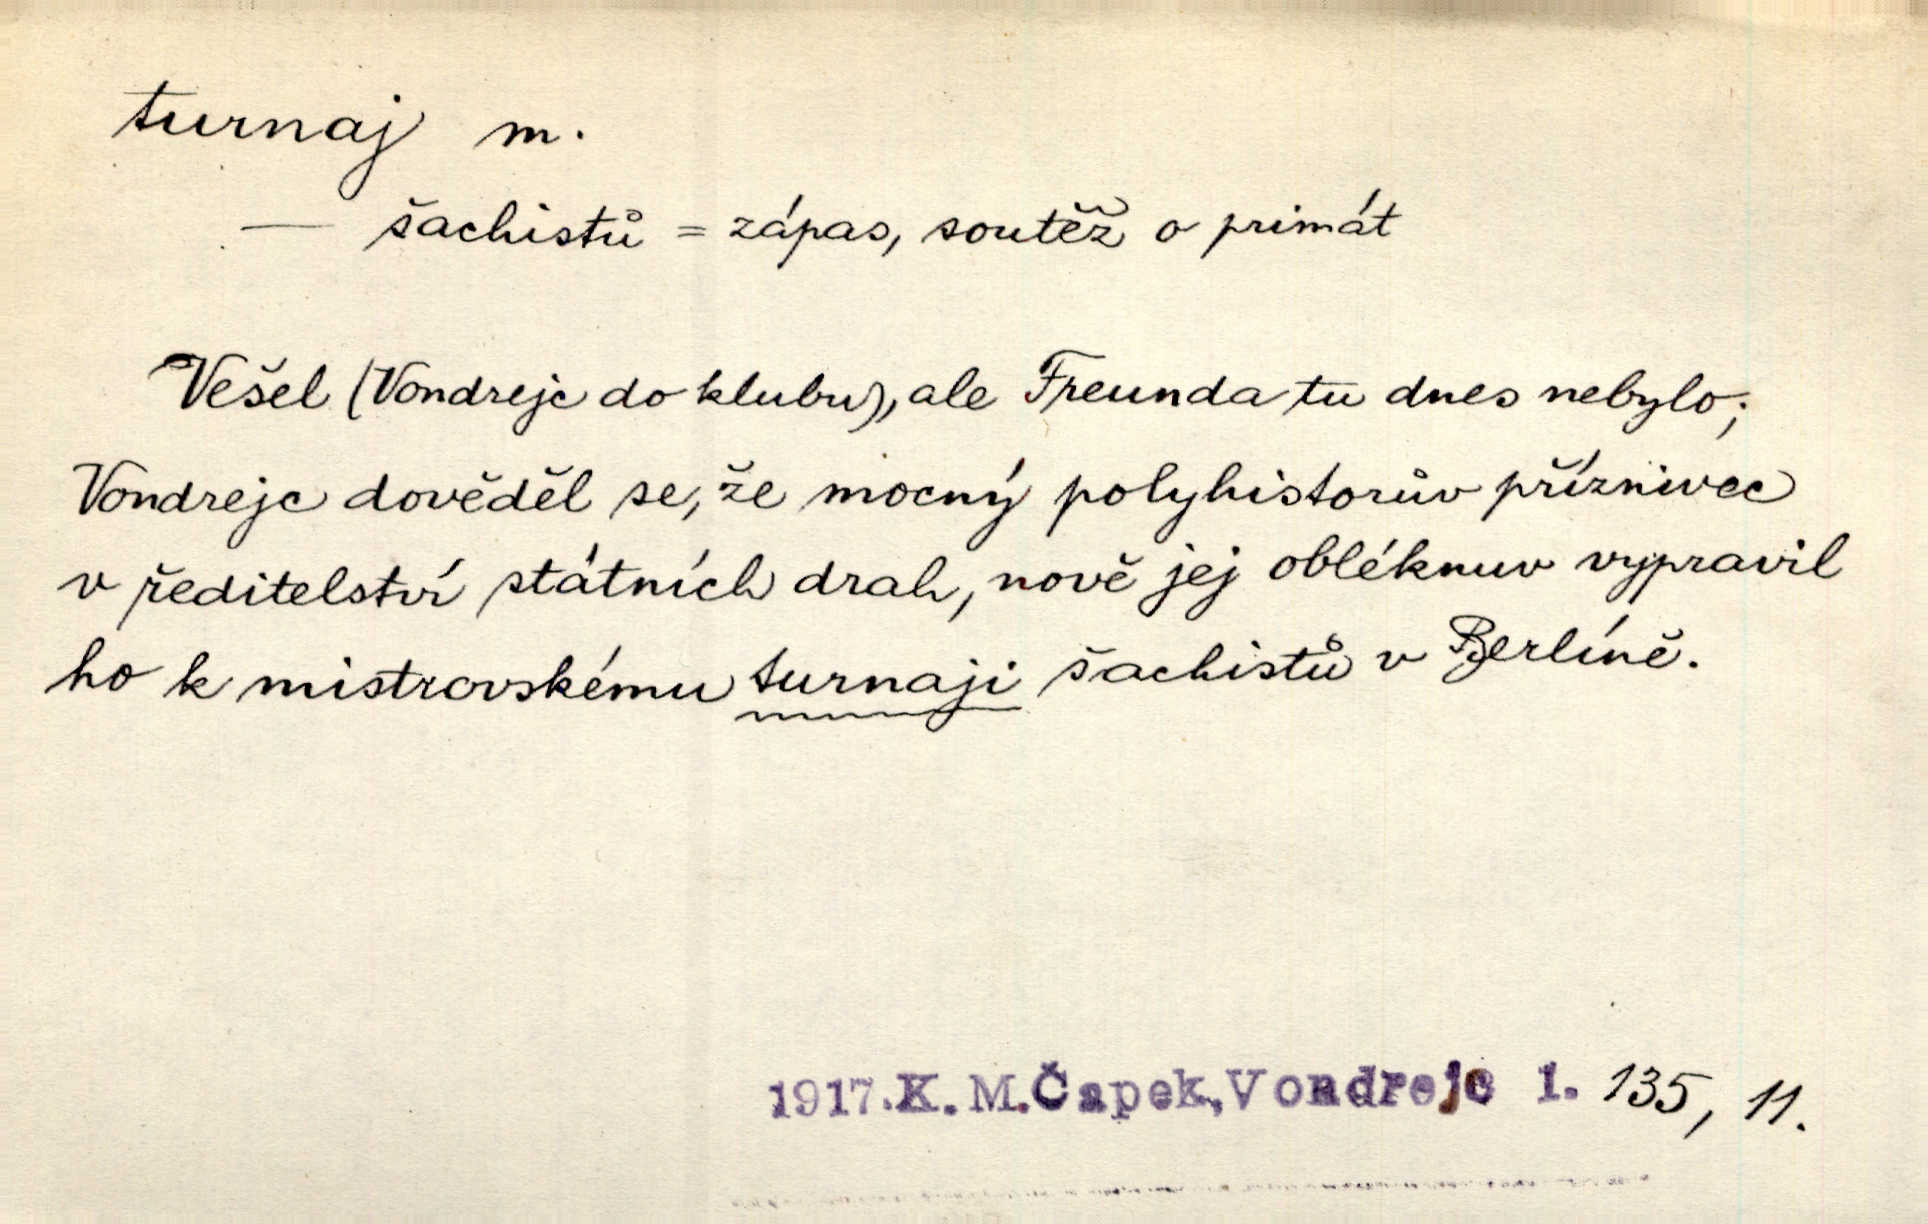 turnaj m.
— šachistů = zápas, soutěž o primát
Vešel (Vondrejc do klubu), ale Freunda tu dnes nebylo;
Vondrejc dověděl se, že mocný polyhistorův příznivec
v ředitelství státních drah, nově jej obléknuv vypravil
ho k mistrovskému turnaji šachistů v Berlíně.
1917. K. M. Čapek, Vondrejc 1. 135, 11.